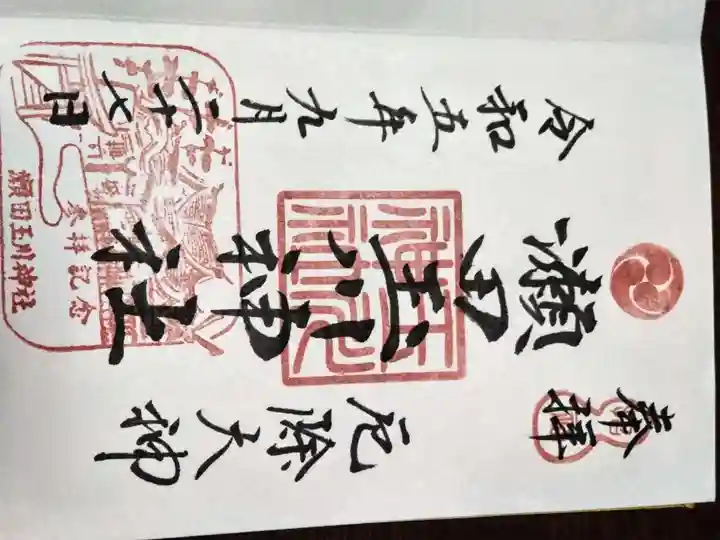 奉拝
厄除大神
瀬田玉川神社
令和五年九月二十七日
参拝記念
瀬田玉川神社